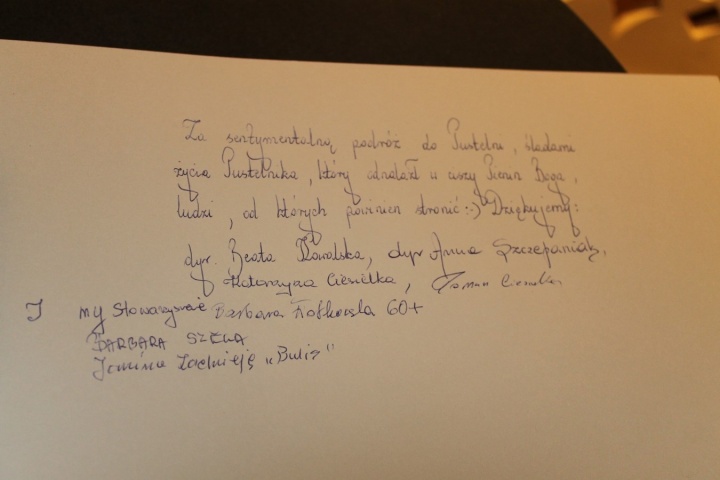 Za sentymentalną podróż do Pustelni, śladami
życia Pustelnika, który odnalazł w ciszy Pienin Boga,
ludzi, od których powinien stronić :-) Dziękujemy:
dyr. Beata Kowalska, dyr Anna Szczepaniak,
Katarzyna Ciesielka, Roman
I my Stowarzyszenie Barbara 60+
BARBARA
Janina "Bulis"